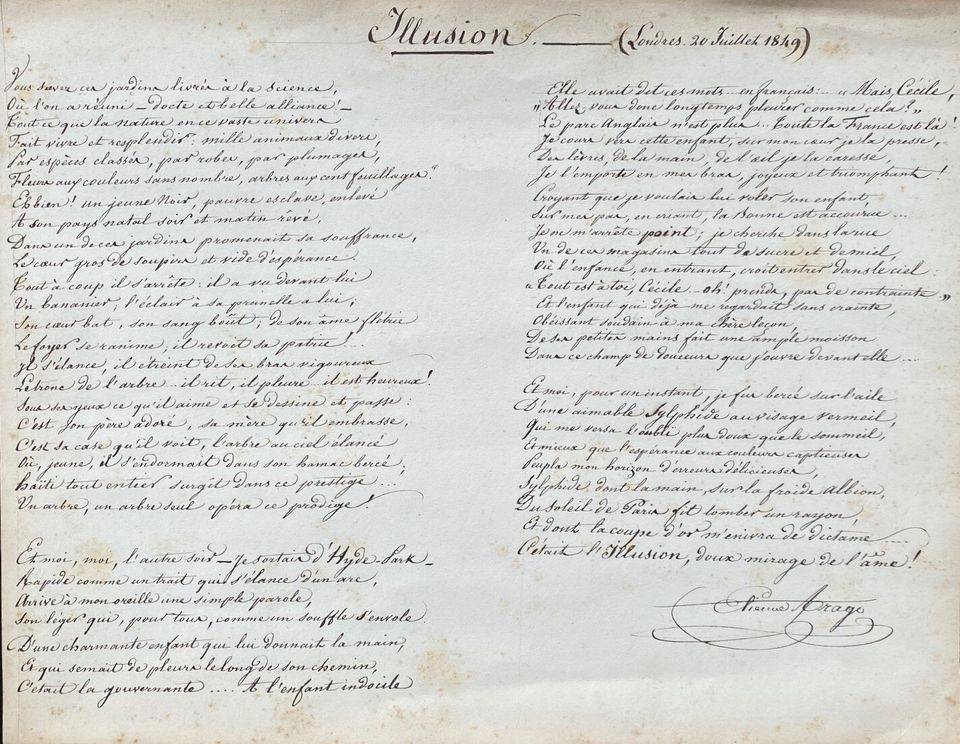 Illusion. — (Londres. 20 Juillet 1849)
Vous savez ces jardins livrés à la science,
Où l'on a réuni — docte et belle alliance! —
Tout ce que la nature en ce vaste univers
Fait vivre et resplendir: mille animaux divers,
Par espèces classés, par robes, par plumages,
Fleurs aux couleurs sans nombre, arbres aux cent feuillages.
Eh bien! un jeune Noir, pauvre esclave enlevé
A son pays natal soir et matin rêvé,
Dans un de ces jardins promenait sa souffrance,
Le cœur gros de soupirs et vide d'espérance.
Tout à coup il s'arrête: il a vu devant lui
Un bananier, l'éclair à sa prunelle a lui;
Son cœur bat, son sang boût; de son âme flétrie
Le foyer se ranime, il revoit sa patrie....
Il s'élance, il étreint de ses bras vigoureux
Le tronc de l'arbre.. il rit, il pleure.. il est heureux!
Sous ses yeux ce qu'il aime et se dessine et passe:
C'est son père adoré, sa mère qu'il embrasse,
C'est sa case qu'il voit, l'arbre au ciel élancé
Où, jeune, il s'endormait dans son hamac bercé;
Haïti tout entier surgit dans ce prestige....
Un arbre, un arbre seul opéra ce prodige!
Et moi, moi, l'autre soir — Je sortais d'Hyde-Park —
Rapide comme un trait qui s'élance d'un arc,
Arrive à mon oreille une simple parole,
Son léger qui, pour tous, comme un souffle s'envole.
D'une charmante enfant qui lui donnait la main,
Et qui semait de pleurs le long de son chemin,
C'était la gouvernante .... A l'enfant indocile
Elle avait dit ces mots.. en français: „ Mais, Cécile,
„Allez vous donc longtemps pleurer comme cela?"
Le parc Anglais n'est plus... Toute la France est là!
Je cours vers cette enfant, sur mon cœur je la presse,
Des lèvres, de la main, de l'œil je la caresse,
Je l'emporte en mes bras, joyeux et triomphant!
Croyant que je voulais lui voler son enfant,
Sur mes pas, en criant, la Bonne est accourue...
Je ne m'arrête point; je cherche dans la rue
Un de ces magasins tout de sucre et de miel,
Où l'enfance, en entrant, croit entrer dans le ciel:
„Tout est à toi, Cécile — oh! prends, pas de contrainte„
Et l'enfant qui déjà me regardait sans crainte,
Obéissant soudain à ma chère leçon,
De ses petites mains fait une ample moisson
Dans ce champ de douceurs que j'ouvre devant elle ....
Et moi, pour un instant, je fus bercé sur l'aile
D'une aimable Sylphide au visage vermeil,
Qui me versa l'oubli plus doux que le sommeil,
Et mieux que l'espérance aux couleurs captieuses
Peupla mon horizon d'erreurs délicieuses,
Sylphide, dont la main, sur la froide Albion,
Du soleil de Paris fit tomber un rayon,
Et dont la coupe d'or m'enivra de dictame....
C'était l'Illusion, doux mirage de l'âme!
Etienne Arago